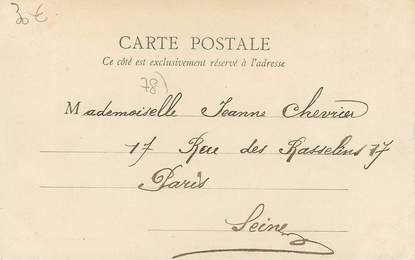 30 €
CARTE POSTALE
Ce côté est exclusivement réservé à l'adresse
78)
Mademoiselle Jeanne Chevrier
17 Rue des Rasselins 17
Paris
Seine